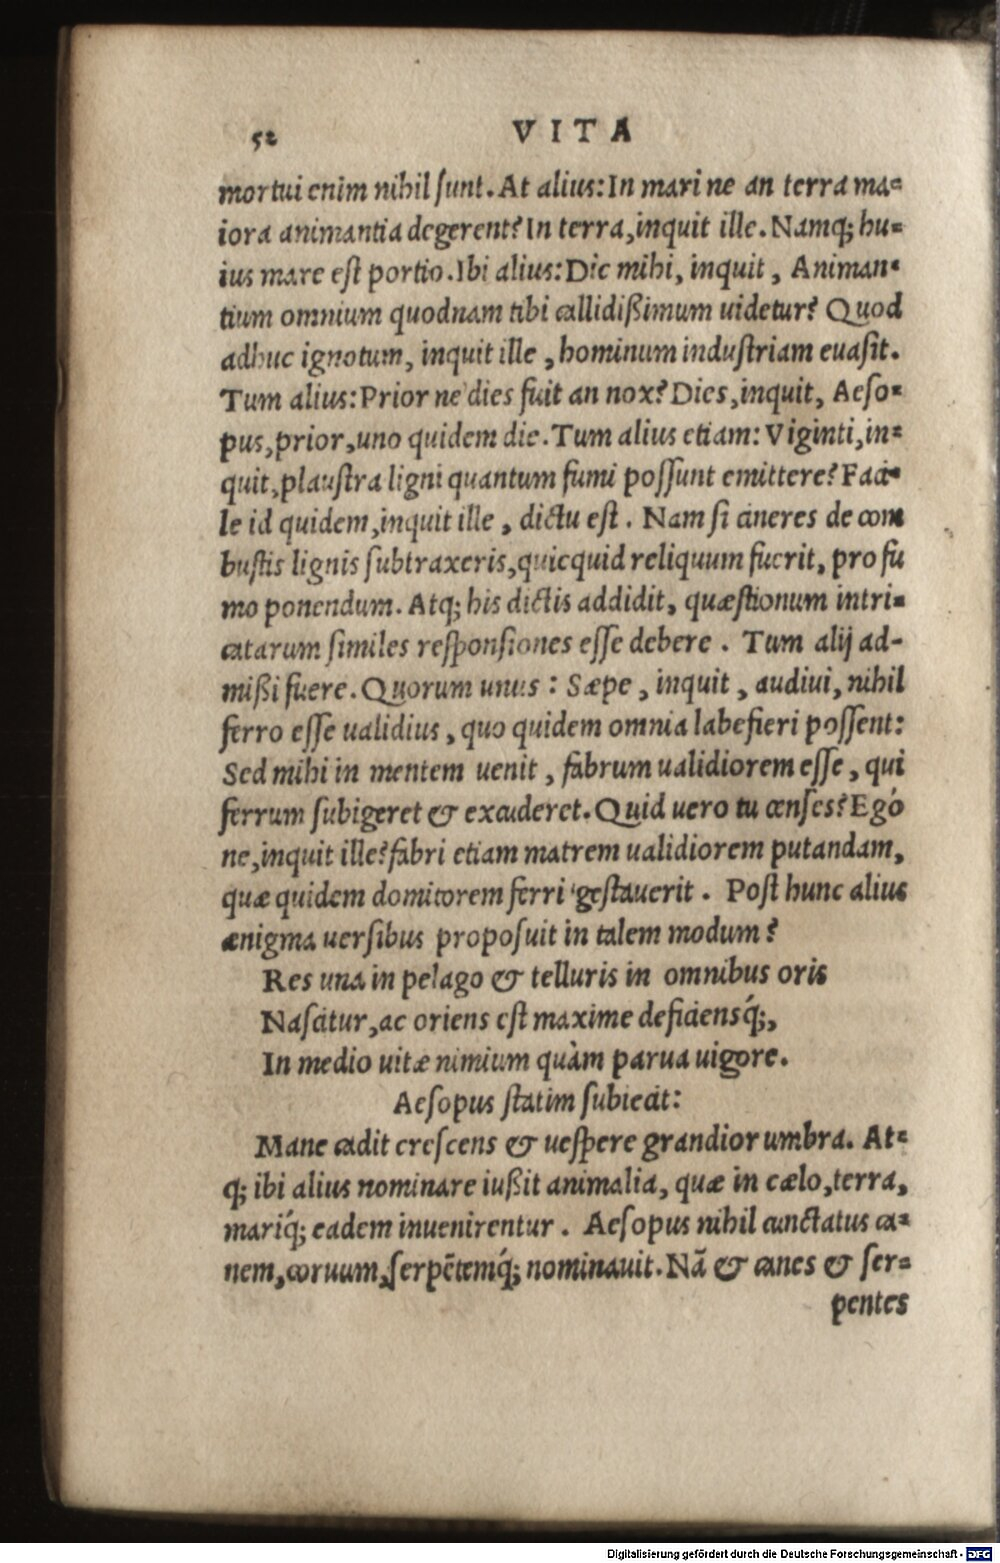 52 VITA
mortui enim nihil ſunt. At alius: In mari ne an terra ma=
iora animantia degerent? In terra, inquit ille. Namq; hu=
ius mare eſt portio. Ibi alius: Dic mihi, inquit, Animan=
tium omnium quodnam tibi callidißimum uidetur? Quod
adhuc ignotum, inquit ille, hominum induſtriam euaſit.
Tum alius: Prior ne dies fuit an nox? Dies, inquit, Aeſo=
pus, prior, uno quidem die. Tum alius etiam: Viginti, in=
quit, plauſtra ligni quantum fumi poſſunt emittere? Faci=
le id quidem, inquit ille, dictu eſt. Nam ſi cineres de com
buſtis lignis ſubtraxeris, quicquid reliquum fuerit, pro fu
mo ponendum. Atq; his dictis addidit, quæſtionum intri=
catarum ſimiles reſponſiones eſſe debere. Tum alij ad-
mißi fuere. Quorum unus: Sæpe, inquit, audiui, nihil
ferro eſſe ualidius, quo quidem omnia labefieri poſſent:
Sed mihi in mentem uenit, fabrum ualidiorem eſſe, qui
ferrum ſubigeret & excuderet. Quid uero tu cenſes? Egó
ne, inquit ille? fabri etiam matrem ualidiorem putandam,
quæ quidem domitorem ferri geſtauerit. Poſt hunc alius
ænigma uerſibus propoſuit in talem modum?
Res una in pelago & telluris in omnibus oris
Naſcitur, ac oriens eſt maxime deficiensq́;,
In medio uitæ nimium quàm parua uigore.
Aeſopus ſtatim ſubiecit:
Mane cadit creſcens & ueſpere grandior umbra. At=
q; ibi alius nominare iußit animalia, quæ in cælo, terra,
mariq́; eadem inuenirentur. Aeſopus nihil cunctatus ca=
nem, coruum, ſerpētemq́; nominauit. Nā & canes & ſer=
pentes
Digitalisierung gefördert durch die Deutsche Forschungsgemeinschaft - DFG